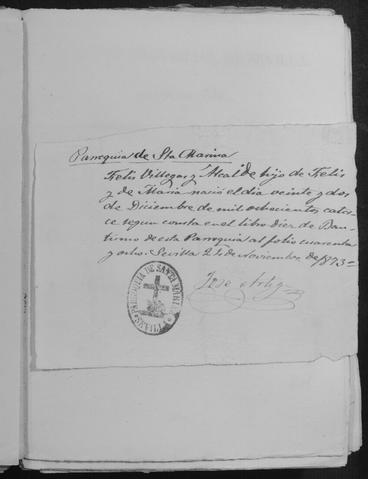 Parroquia de Sta Marina
Felis Villegas y Alcalde hijo de Felis
y de Maria nació el dia veinte y dos
de Diciembre de mil ochocientos cator-
ce segun consta en el libro diez de Bau-
tismo de esta Parroquia al folio cuarenta
y ocho. Sevilla 24 de Noviembre de 1873=
Jose
PARROQUIA DE SANTA MARINA
SEVILLA